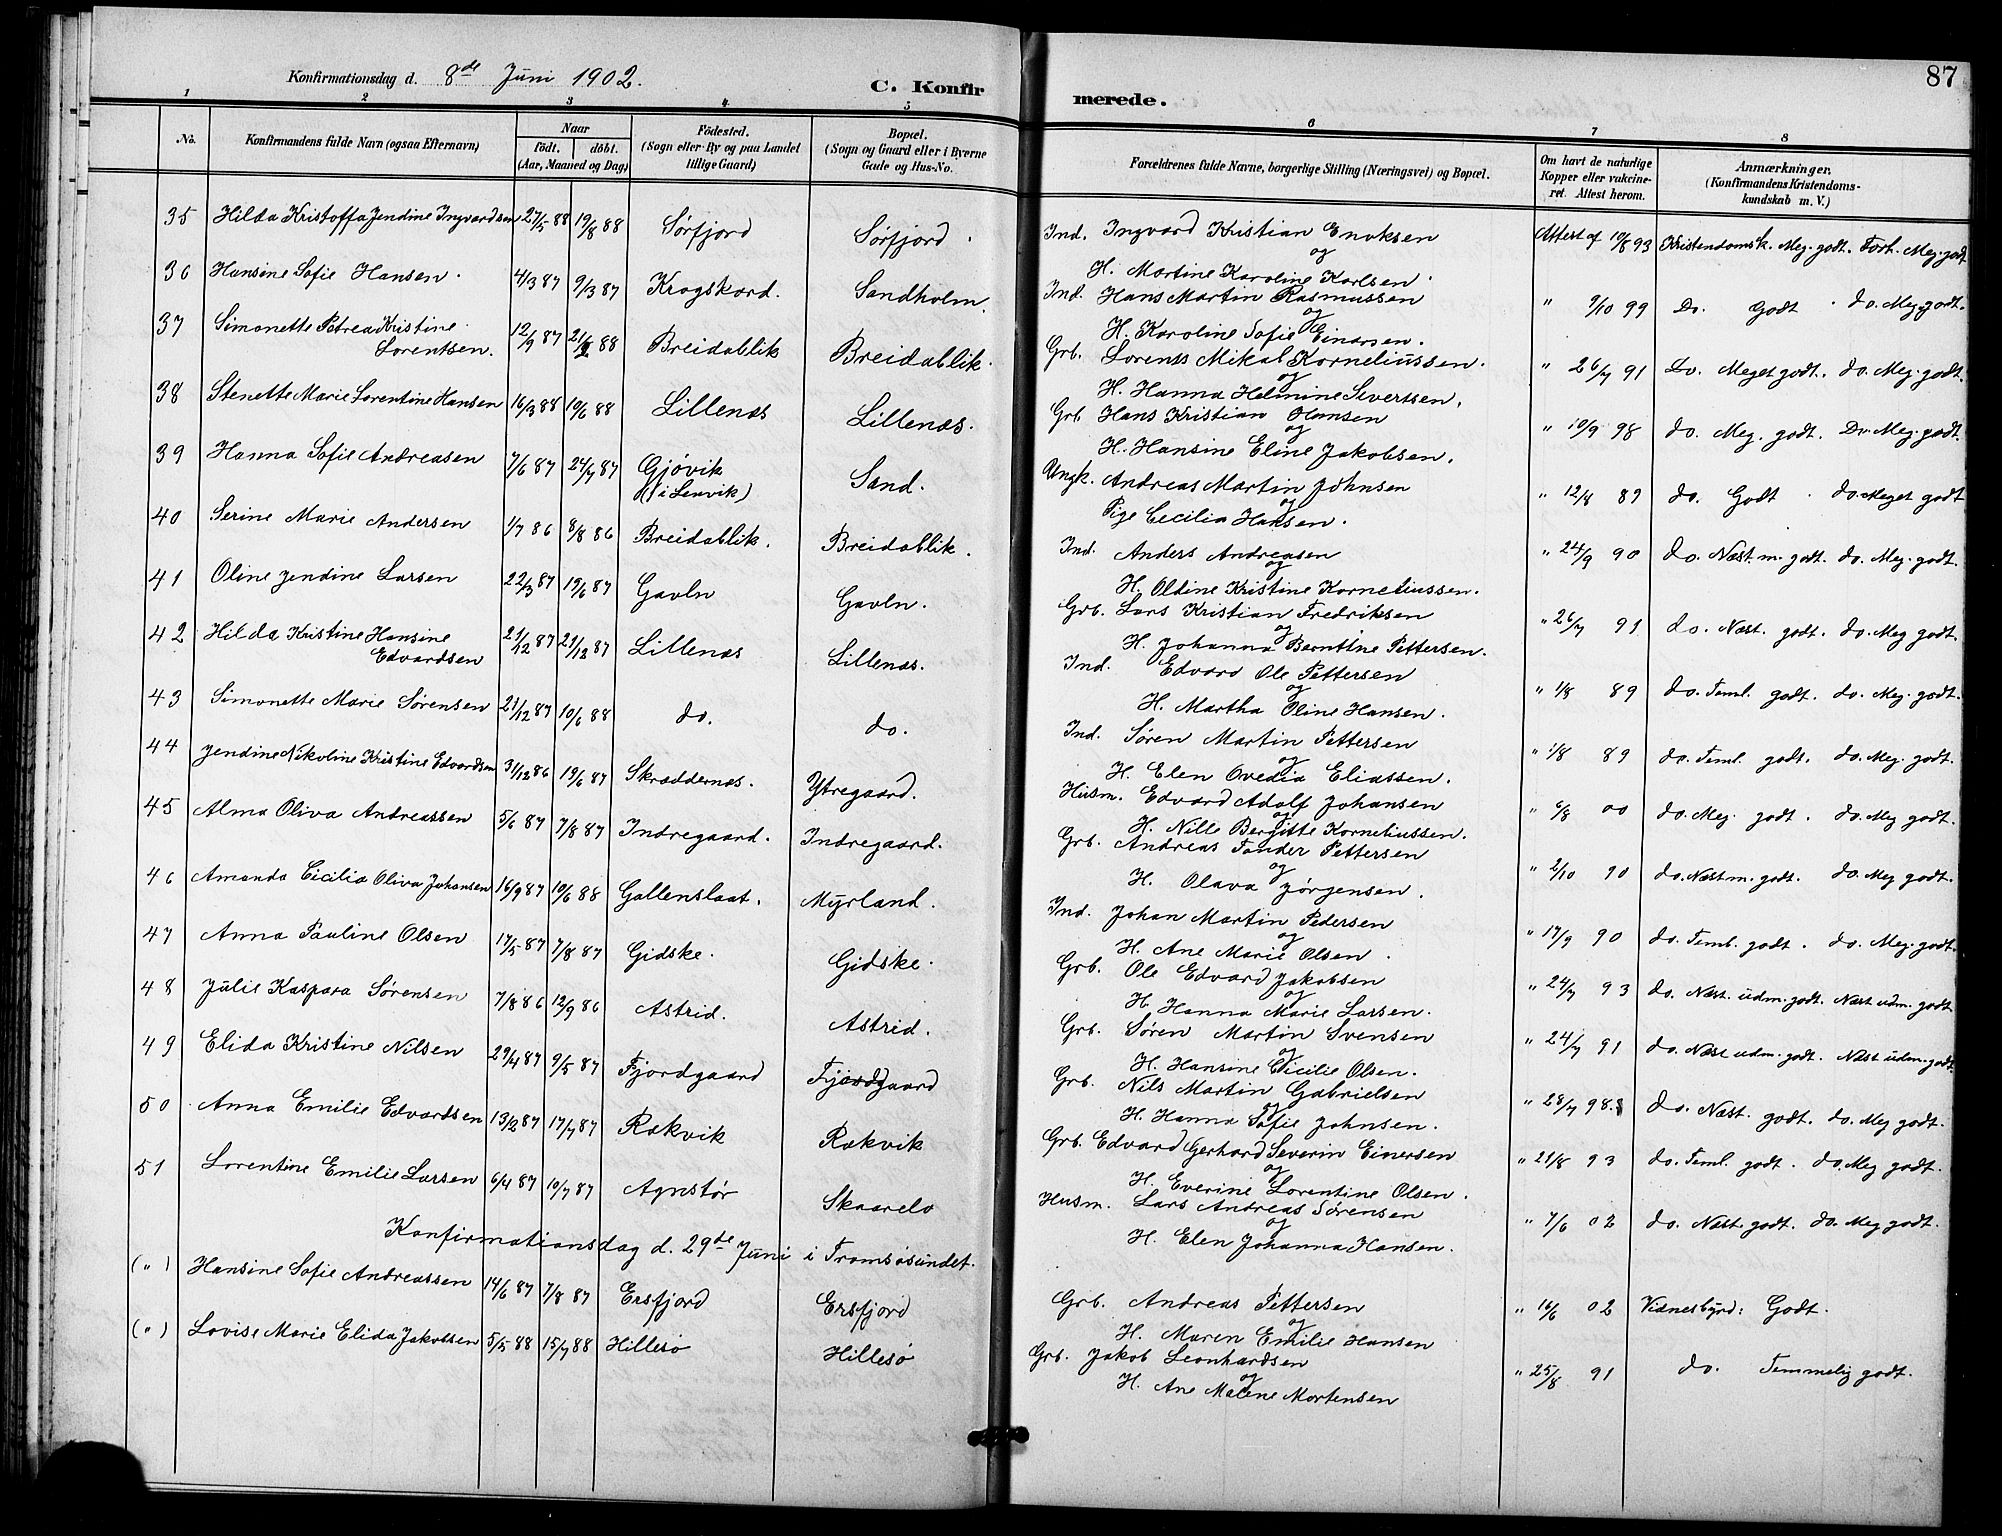 87
Konfirmationsdag d. 8de Juni 1902.
C. Konfirmerede.
1 2 3 4 5 6 7 8
No. Konfirmandens fulde Navn (ogsaa Efternavn) Naar født. døbt. (Aar, Maaned og Dag) Fødested. (Sogn eller By og paa Landet tillige Gaard) Bopæl. (Sogn og Gaard eller i Byerne Gade og Hus-No. Forældrenes fulde Navne, borgerlige Stilling (Næringsvei) og Bopæl. Om havt de naturlige Kopper eller vakcineret. Attest herom. Anmærkninger. (Konfirmandens Kristendomskundskab m. V.)
35 Hilda Kristoffa Jendine Ingvardsen 27/5 88 19/8 88 Sørfjord Sørfjord. Ind. Ingvard Kristian Enoksen Attest af 10/8 93 Kristendomsk. Meg. godt. Forh. Meg. godt
og
H. Martine Karoline Karlsen.
36 Hansine Sofie Hansen. 4/3 87 9/3 87 Krogskard. Sandholm. Ind. Hans Martin Rasmussen " 9/10 99 Do. Godt. do. Meg. godt.
og
H. Karoline Sofie Einarsen.
37 Simonette Petrea Kristine Lorentsen. 12/9 87 21/2 88 Breidablik Breidablik. Grb. Lorents Mikal Korneliussen. " 26/7 91 Do. Meget godt. do. Meg. godt.
og
H. Hanna Helmine Sivertsen.
38 Stenette Marie Lorentine Hansen 16/3 88 19/6 88 Lillenæs Lillenæs. Grb Hans Kristian Hansen " 10/9 98 do. Meg. godt. Do. Meg. godt.
og
H. Hansine Eline Jakobsen.
39 Hanna Sofie Andreasen 7/6 87 24/7 87 Gjøvik (i Lenvik) Sand. Ungk. Andreas Martin Johnsen " 12/8 89 do. Godt. do. Meget godt
og
Pige Cecilia Hansen.
40 Serine Marie Andersen 1/7 86 8/8 86 Breidablik. Breidablik. Ind. Anders Andreasen " 24/9 90 do. Næst. m. godt. do. Meg. godt.
og
H. Oldine Kristine Korneliussen.
41 Oline Jendine Larsen 22/3 87 19/6 87 Gavln Gavln. Grb. Lars Kristian Fredriksen " 26/7 91 do. Næst. godt. do. Meg godt.
og
H. Johanna Berntine Pettersen.
42 Hilda Kristine Hansine Edvardsen 21/12 87 21/12 87 Lillenæs Lillenæs. Ind. Edvard Ole Pettersen " 1/8 89 do. Teml. godt. do. Meg. godt.
og
H. Martha Oline Hansen.
43 Simonette Marie Sørensen 21/12 87 10/6 88 do. do. Ind. Søren Martin Pettersen " 1/8 89 do. Teml. godt. do. Meg. godt.
og
H. Elen Ovedia Eliassen.
44 Jendine Nikoline Kristine Edvardsen 31/12 86 19/6 87 Skræddernæs. Ytregaard. Husm. Edvard Adolf Johansen " 6/8 00 do. Meg. godt. do. Meg godt.
og
H. Nille Bergitte Korneliussen.
45 Alma Oliva Andreassen 5/6 87 7/8 87 Indregaard. Indregaard. Grb. Andreas Tander Pettersen " 2/10 90 do. Næst m. godt. do. Meg godt.
og
H. Olava Jørgensen.
46 Amanda Cicilia Oliva Johansen 16/9 87 10/6 88 Gallenslaat. Myrland. Ind. Johan Martin Pedersen " 17/9 90 do. Teml. godt. do. Meg. godt.
og
H. Ane Marie Olsen.
47 Anna Pauline Olsen 17/5 87 7/8 87 Gidske. Gidske. Grb. Ole Edvard Jakobsen " 24/7 93 do. Næst. udm. godt. Næst udm. godt
og
H. Hanna Marie Larsen.
48 Julie Kaspara Sørensen 7/8 86 12/9 86 Astrid. Astrid. Grb. Søren Martin Svensen " 24/7 91 do. Næst udm. godt. Næst udm. godt.
og
H. Hansine Cicilie Olsen.
49 Elida Kristine Nilsen 29/4 87 9/5 87 Fjordgaard Fjordgaard Grb. Nils Martin Gabrielsen " 28/7 98. do. Næst. godt. do. Meg godt.
og
H. Hanna Sofie Johnsen.
50 Anna Emilie Edvardsen 13/2 87 17/7 87 Rækvik Rækvik Grb. Edvard Gerhard Severin Einersen " 21/8 93 do. Teml. godt. do. Meg godt.
og
H. Everine Lorentine Olsen.
51 Lorentine Emilie Larsen 6/4 87 10/7 87 Agnstør Skaarelv Husm. Lars Andreas Sørensen " 7/6 02 do. Næst. godt. do. Meg godt.
og
H. Elen Johanna Hansen.
Konfirmationsdag d. 29de Juni i Tromsøsundet.
(") Hansine Sofie Andreassen 14/6 87 7/8 87 Ersfjord Ersfjord Grb. Andreas Pettersen " 16/6 02 Vidnesbyrd: Godt.
og
H. Maren Emilie Hansen
(") Lovise Marie Elida Jakobsen 5/5 88 15/7 88 Hillesø Hillesø Grb. Jakob Leonhardsen " 25/8 91 do. Temmelig godt.
og
H. Ane Malene Mortensen